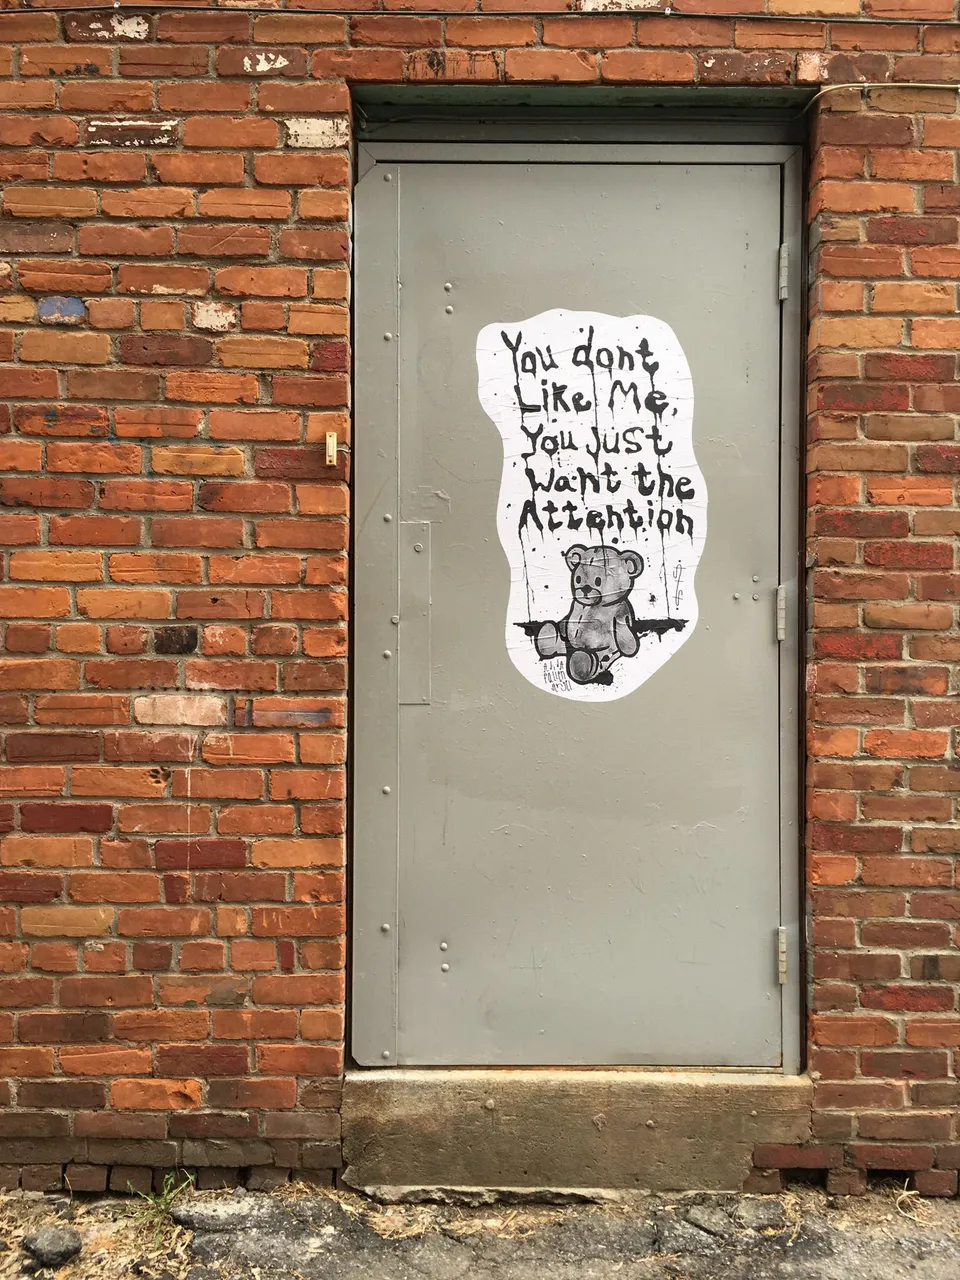 You dont
Like Me,
You Just
Want the
Attention